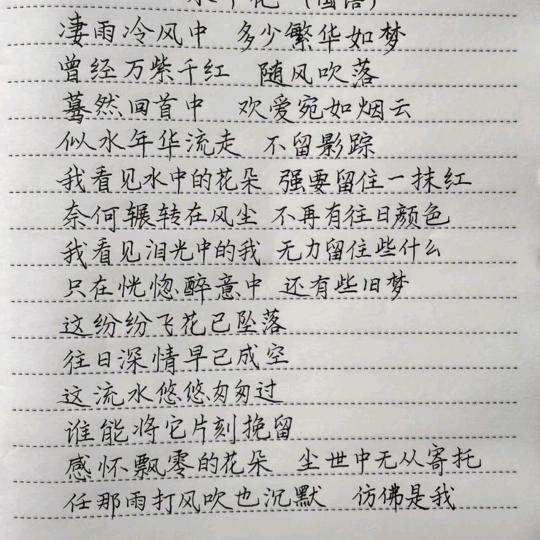 水中花 (国语)
凄雨冷风中 多少繁华如梦
曾经万紫千红 随风吹落
蓦然回首中 欢爱宛如烟云
似水年华流走 不留影踪
我看见水中的花朵 强要留住一抹红
奈何辗转在风尘 不再有往日颜色
我看见泪光中的我 无力留住些什么
只在恍惚醉意中 还有些旧梦
这纷纷飞花已坠落
往日深情早已成空
这流水悠悠匆匆过
谁能将它片刻挽留
感怀飘零的花朵 尘世中无从寄托
任那雨打风吹也沉默 仿佛是我